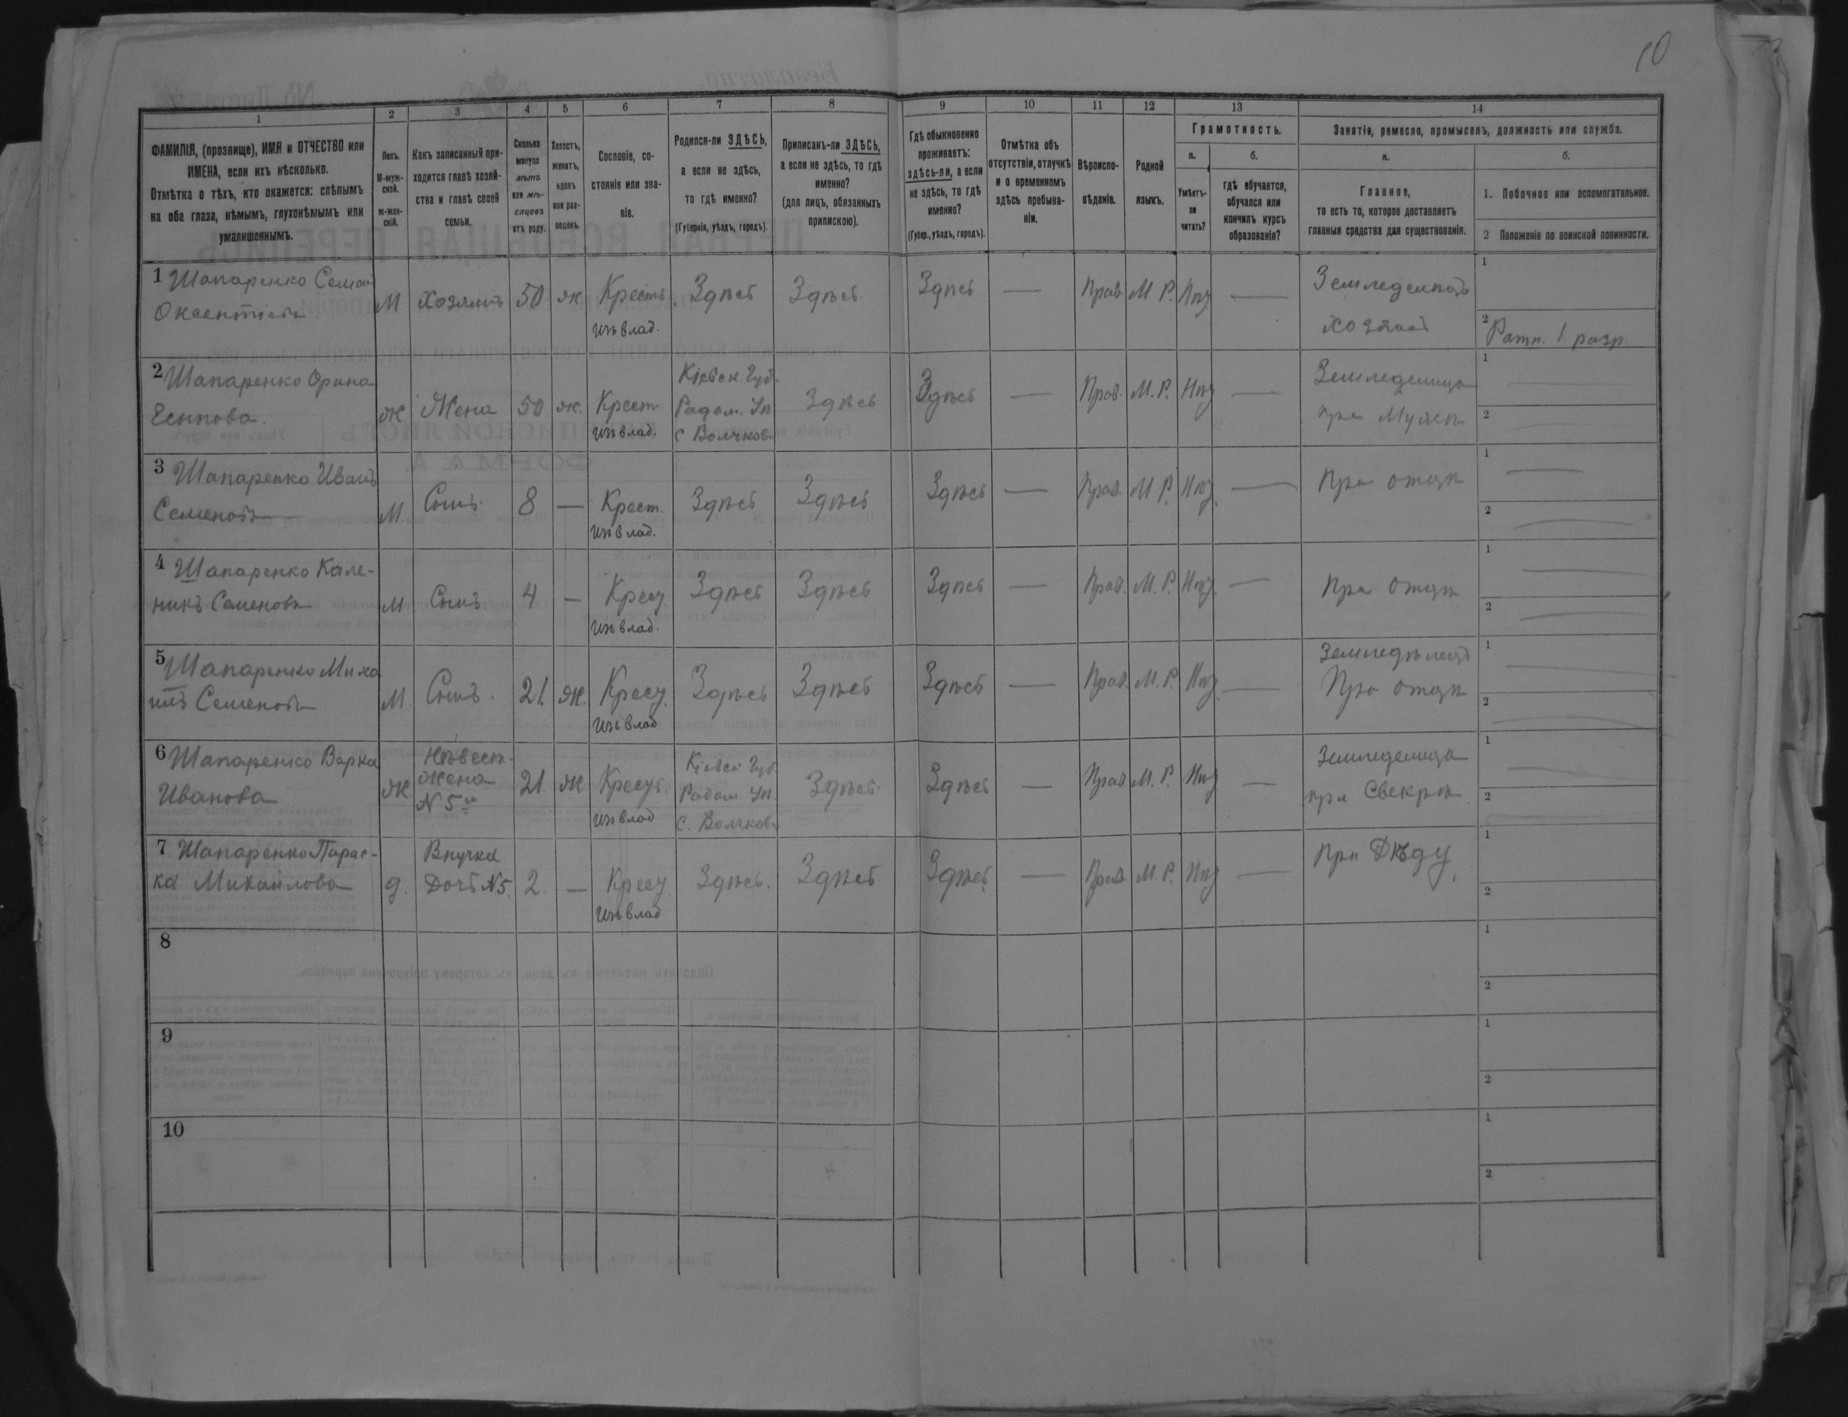 10
1 2 3 4 5 6 7 8 9 10 11 12 13 14
ФАМИЛІЯ, (прозвище), ИМЯ и ОТЧЕСТВО или
ИМЕНА, если ихъ нѣсколько.
Отмѣтка о тѣхъ, кто окажется: слѣпымъ
на оба глаза, нѣмымъ, глухонѣмымъ или
умалишеннымъ.
Полъ.
М-муж-
ской.
Ж-жен-
скій.
Какъ записанный при-
ходится главѣ хозяй-
ства и главѣ своей
семьи.
Сколько
минуло
лѣтъ
или мѣ-
сяцевъ
отъ роду.
Холостъ,
женатъ,
вдовъ
или раз-
веденъ.
Сословіе, со-
стояніе или зва-
ніе.
Родился-ли ЗДѢСЬ,
а если не здѣсь,
то гдѣ именно?
(Губернія, уѣздъ, городъ).
Приписанъ-ли ЗДѢСЬ,
а если не здѣсь, то гдѣ
именно?
(для лицъ, обязанныхъ
припискою).
Гдѣ обыкновенно
проживаетъ:
здѣсь-ли, а если
не здѣсь, то гдѣ
именно?
(Губер., уѣздъ, городъ).
Отмѣтка объ
отсутствіи, отлучкѣ
и о временномъ
здѣсь пребыва-
ніи.
Вѣроиспо-
вѣданіе.
Родной
языкъ.
Грамотность.
а.
Умѣетъ-
ли
читать?
б.
гдѣ обучается,
обучался или
кончилъ курсъ
образованія?
Занятіе, ремесло, промыселъ, должность или служба.
а.
Главное,
то есть то, которое доставляетъ
главныя средства для существованія.
б.
1. Побочное или вспомогательное.
2 Положеніе по воинской повинности.
1 Шапаренко Семен
Оксентіевъ
М хозяинъ 50 ж Крестъ
изъ влад.
Здѣсь Здѣсь Здѣсь — Прав. М. Р. Нѣт —
Земледелецъ
хозяин
1
2 Ратн. 1 разр
2 Шапаренко Орина
Есипова
ж Жена 50 ж. Крест.
изъ влад.
Кіевск. Губ.
Радом. Уѣ.
с Волчков
Здѣсь Здѣсь — Прав. М. Р. Нѣт —
Земледелица
при Мужѣ
1
2
3 Шапаренко Иванъ
Семеновъ
М Сынъ 8 — Крест.
изъ влад.
Здѣсь Здѣсь Здѣсь — Прав. М Р. Нѣт —
При отцѣ
1
2
4 Шапаренко Кале-
никъ Семеновъ
М Сынъ 4 — Крест
изъ влад.
Здѣсь Здѣсь Здѣсь — Прав. М. Р. Нѣт —
При отцѣ
1
2
5 Шапаренко Миха
илъ Семеновъ
М. Сынъ. 21 ж. Крест.
изъ влад
Здѣсь Здѣсь Здѣсь — Прав. М. Р. Нѣт —
Земледѣлецъ
При отцѣ
1
2
6 Шапаренко Варка
Иванова
ж Невест.
Жена
N 5го
21 ж Крест.
изъ влад
Кіевск Губ
Радом Уѣ.
с. Волчков
Здѣсь Здѣсь — Прав М. Р. Нѣт —
Земледелица
при Свекрѣ
1
2
7 Шапаренко Парас-
ка Михайлова
д. Внучка
Дочь N 5.
2 — Крест
изъ влад
Здѣсь. Здѣсь Здѣсь — Прав М. Р. Нѣт —
При Дѣду
1
2
8
1
2
9
1
2
10
1
2